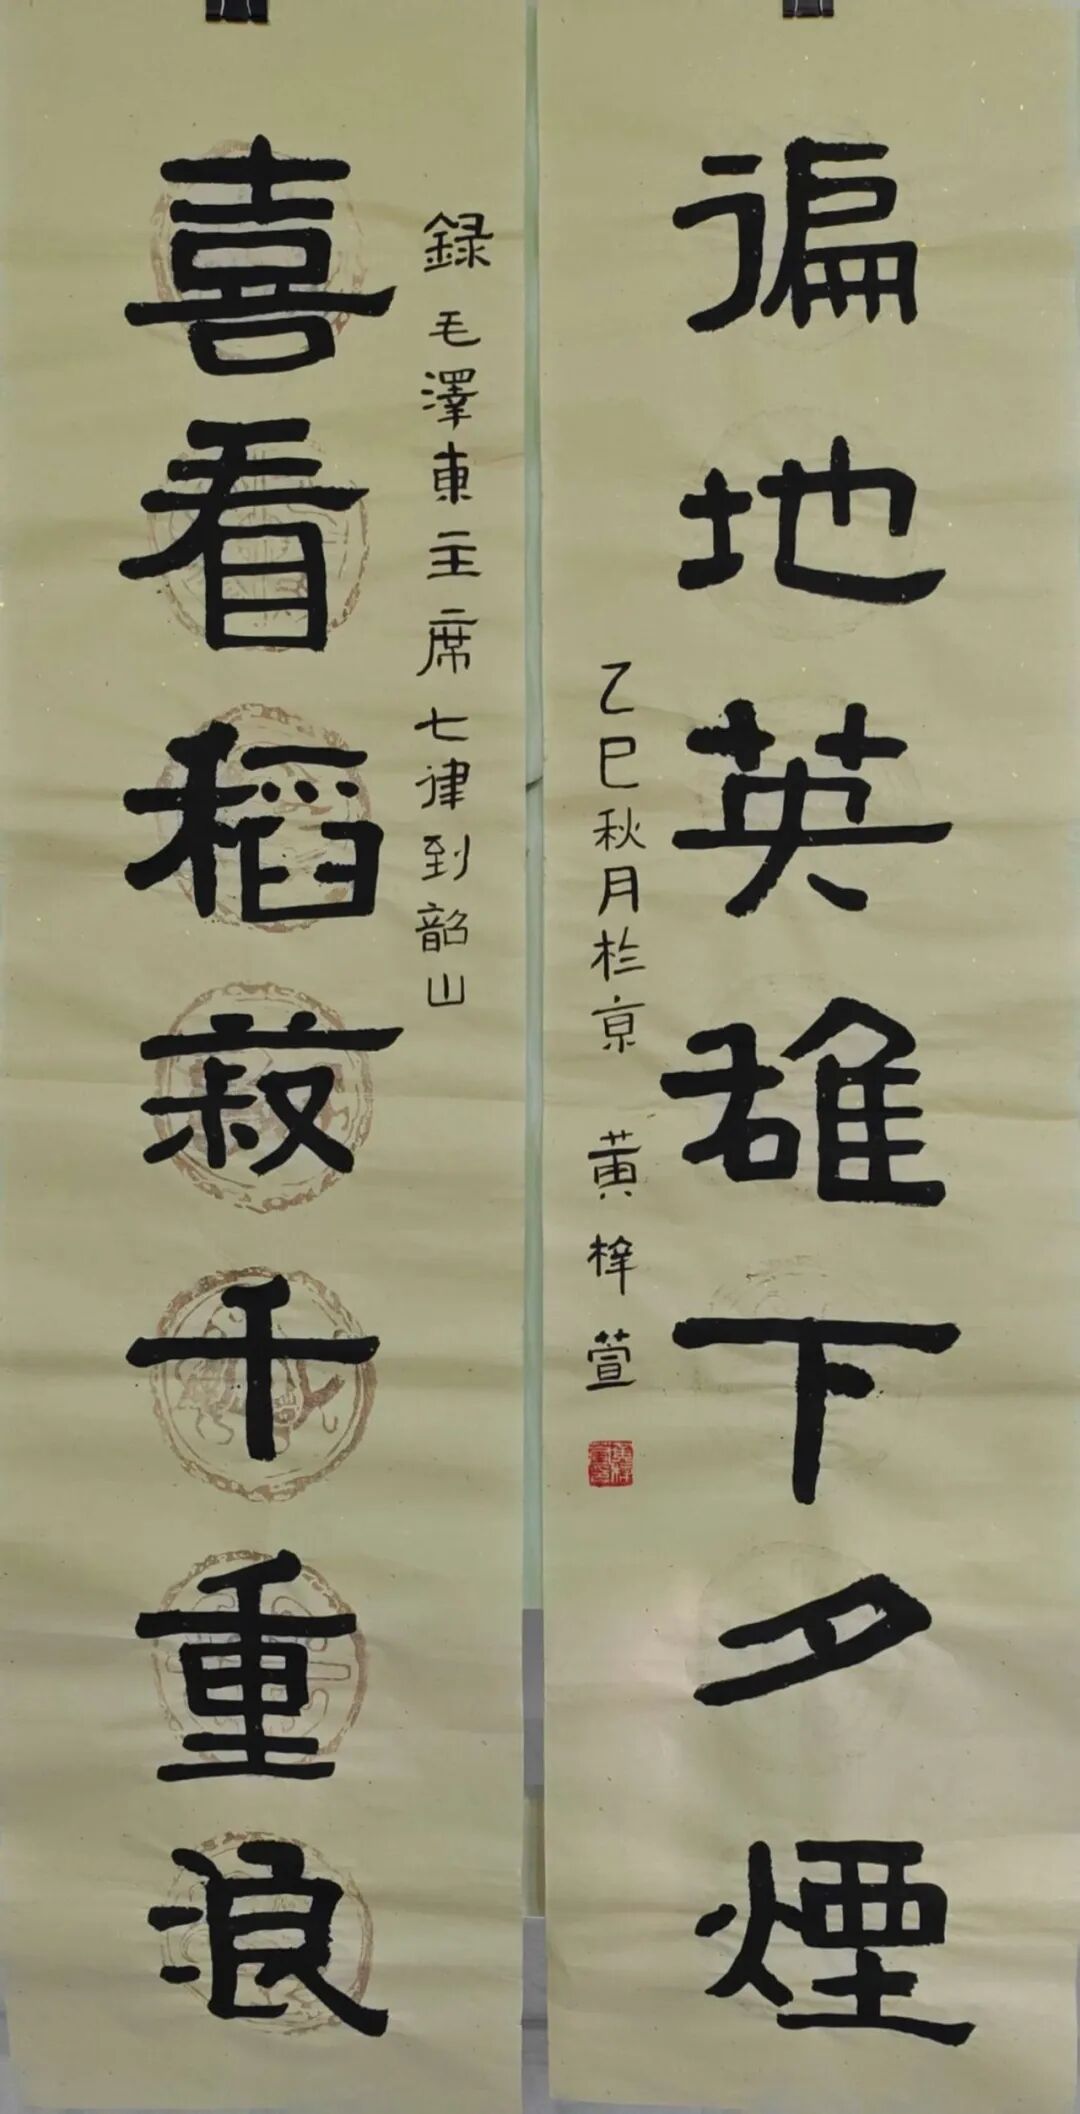 喜看稻菽千重浪
録毛澤東主席七律到韶山
乙巳秋月於京 黄梓萱
徧地英雄下夕煙